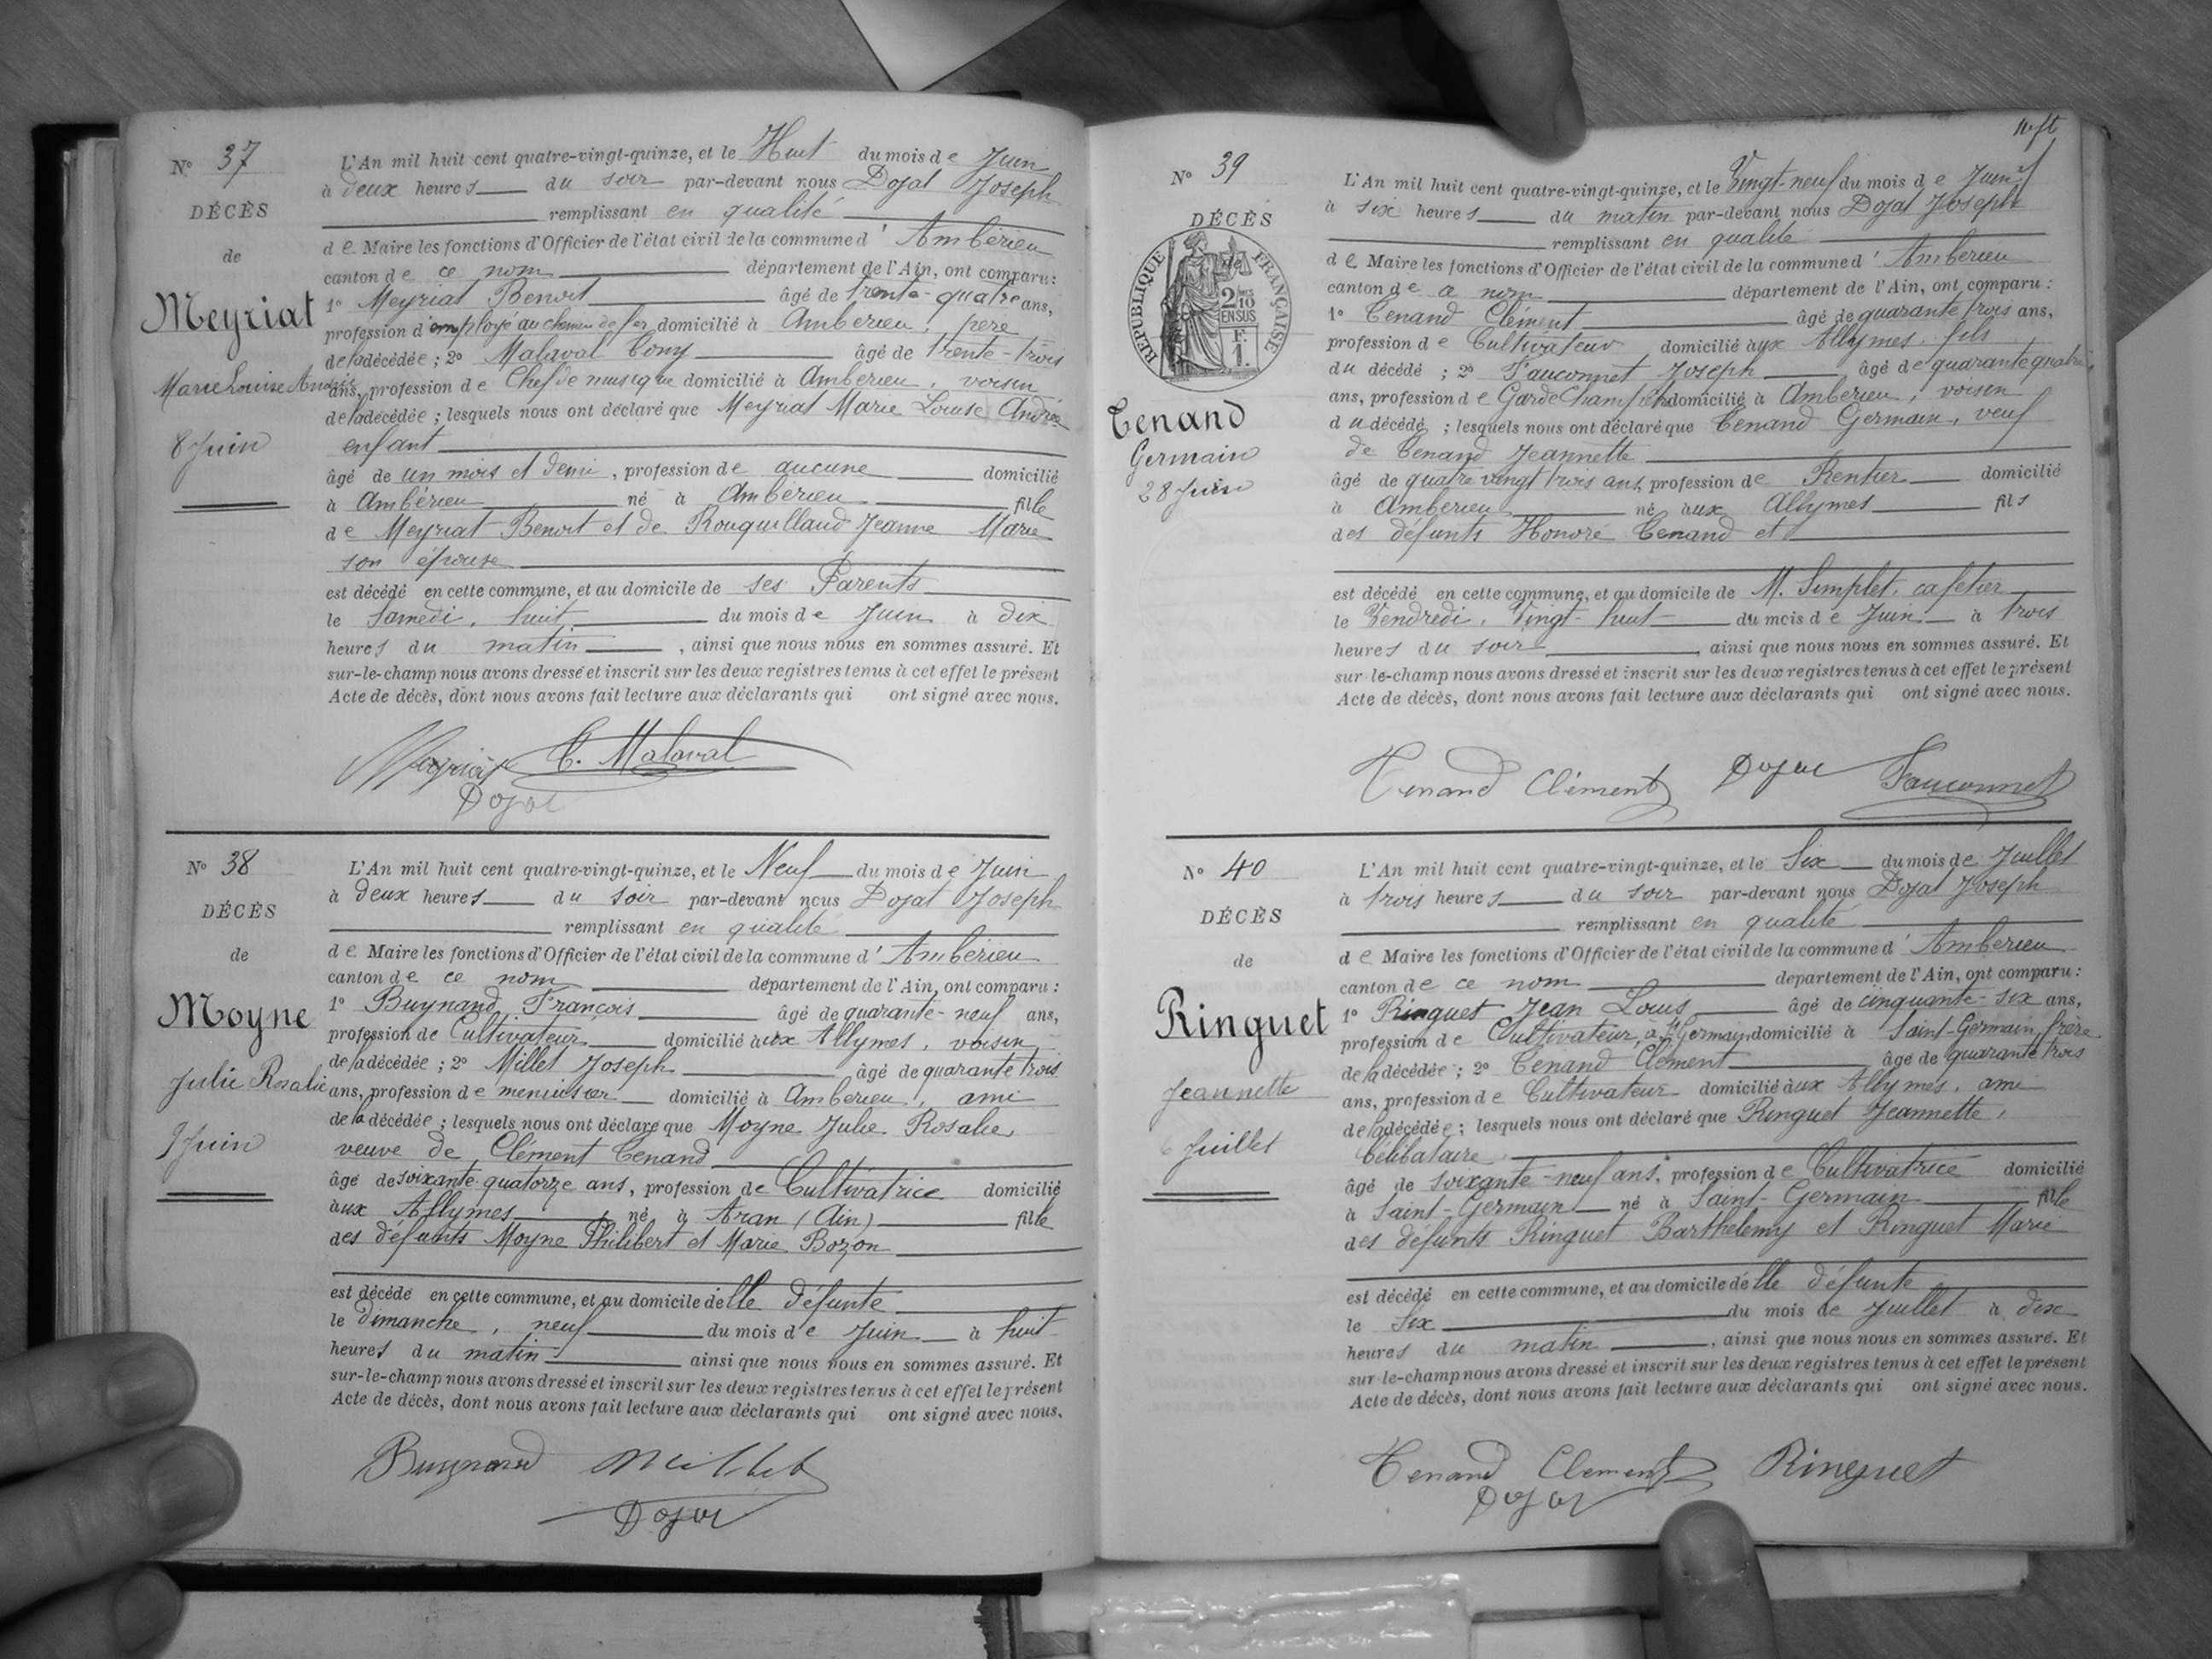 N° 37
DÉCÈS
de
Meyriat
Marie Louise Andrée
8 Juin
L'An mil huit cent quatre-vingt-quinze, et le Huit du mois de Juin
à deux heures du soir par-devant nous Dojat Joseph
remplissant en qualité
de Maire les fonctions d'Officier de l'état civil de la commune d'Ambérieu
canton de ce nom département de l'Ain, ont comparu:
1° Meyriat Benoit âgé de trente-quatre ans,
profession d'employé au chemin de fer domicilié à Ambérieu, père
de la décédée ; 2° Malaval Tony âgé de trente-trois
ans, profession de Chef de musique domicilié à Ambérieu, voisin
de la décédée ; lesquels nous ont déclaré que Meyriat Marie Louise Andrée
enfant
âgé de un mois et demi, profession de aucune domicilié
à Ambérieu né à Ambérieu fille
de Meyriat Benoit et de Rouquillaud Jeanne Marie
son épouse
est décédé en cette commune, et au domicile de ses Parents
le Samedi, huit du mois de Juin à dix
heures du matin, ainsi que nous nous en sommes assuré. Et
sur-le-champ nous avons dressé et inscrit sur les deux registres tenus à cet effet le présent
Acte de décès, dont nous avons fait lecture aux déclarants qui ont signé avec nous.
Meyriat C. Malaval
Dojat
N° 38
DÉCÈS
de
Moyne
Julie Rosalie
9 Juin
L'An mil huit cent quatre-vingt-quinze, et le Neuf du mois de Juin
à deux heures du soir par-devant nous Dojat Joseph
remplissant en qualité
de Maire les fonctions d'Officier de l'état civil de la commune d'Ambérieu
canton de ce nom département de l'Ain, ont comparu :
1° Buynand François âgé de quarante-neuf ans,
profession de Cultivateur domicilié aux Allymes, voisin
de la décédée ; 2° Millet Joseph âgé de quarante trois
ans, profession de menuisier domicilié à Ambérieu, ami
de la décédée ; lesquels nous ont déclaré que Moyne Julie Rosalie,
veuve de Clément Tenand
âgé de soixante quatorze ans, profession de Cultivatrice domicilié
aux Allymes né à Aran (Ain) fille
des défunts Moyne Philibert et Marie Bozon
est décédé en cette commune, et au domicile de lle défunte
le dimanche, neuf du mois de Juin à huit
heures du matin ainsi que nous nous en sommes assuré. Et
sur-le-champ nous avons dressé et inscrit sur les deux registres tenus à cet effet le présent
Acte de décès, dont nous avons fait lecture aux déclarants qui ont signé avec nous.
Buynand Millet
Dojat
N° 39
DÉCÈS
de
RÉPUBLIQUE FRANÇAISE
2/10 EN SUS
F. 1.
Tenand
Germain
28 Juin
L'An mil huit cent quatre-vingt-quinze, et le Vingt-neuf du mois de Juin
à six heures du matin par-devant nous Dojat Joseph
remplissant en qualité
de Maire les fonctions d'Officier de l'état civil de la commune d'Ambérieu
canton de ce nom département de l'Ain, ont comparu :
1° Tenand Clément âgé de quarante trois ans,
profession de Cultivateur domicilié aux Allymes, fils
du décédé ; 2° Fauconnet Joseph âgé de quarante quatre
ans, profession de Garde Champêtre domicilié à Ambérieu, voisin
du décédé ; lesquels nous ont déclaré que Tenand Germain, veuf
de Tenand Jeannette
âgé de quatre vingt trois ans, profession de Rentier domicilié
à Ambérieu né aux Allymes fils
des défunts Honoré Tenand et
est décédé en cette commune, et au domicile de M. Simplet, cafetier
le Vendredi, Vingt-huit du mois de Juin à trois
heures du soir, ainsi que nous nous en sommes assuré. Et
sur-le-champ nous avons dressé et inscrit sur les deux registres tenus à cet effet le présent
Acte de décès, dont nous avons fait lecture aux déclarants qui ont signé avec nous.
Tenand Clément Dojat Fauconnet
N° 40
DÉCÈS
de
Ringuet
Jeannette
6 Juillet
L'An mil huit cent quatre-vingt-quinze, et le Six du mois de Juillet
à trois heures du soir par-devant nous Dojat Joseph
remplissant en qualité
de Maire les fonctions d'Officier de l'état civil de la commune d'Ambérieu
canton de ce nom département de l'Ain, ont comparu :
1° Ringuet Jean Louis âgé de cinquante-six ans,
profession de Cultivateur, à St Germain domicilié à Saint-Germain, frère
de la décédée ; 2° Tenand Clément âgé de quarante trois
ans, profession de Cultivateur domicilié aux Allymes, ami
de la décédée ; lesquels nous ont déclaré que Ringuet Jeannette,
Célibataire,
âgé de soixante-neuf ans, profession de Cultivatrice domicilié
à Saint-Germain né à Saint-Germain fille
des défunts Ringuet Barthélemy et Ringuet Marie
est décédé en cette commune, et au domicile de lle défunte
le Six du mois de Juillet à dix
heures du matin, ainsi que nous nous en sommes assuré. Et
sur-le-champ nous avons dressé et inscrit sur les deux registres tenus à cet effet le présent
Acte de décès, dont nous avons fait lecture aux déclarants qui ont signé avec nous.
Tenand Clément Ringuet
Dojat